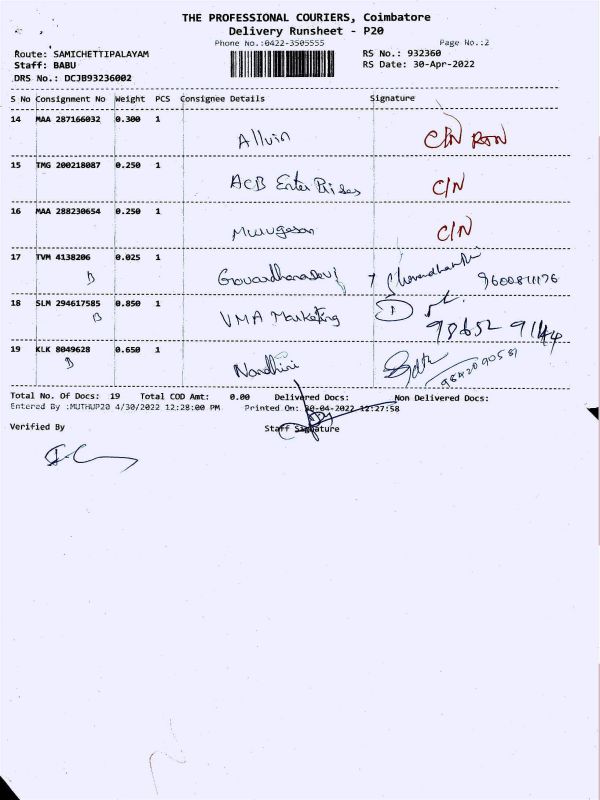 THE PROFESSIONAL COURIERS, Coimbatore
Delivery Runsheet - P20
Phone No.:0422-3505555
Page No.:2
Route: SAMICHETTIPALAYAM
RS No.: 932360
Staff: BABU
RS Date: 30-Apr-2022
DRS No.: DCJB93236002
S No Consignment No Weight PCS Consignee Details Signature
14 MAA 287166032 0.300 1
Alluin
15 TMG 200218087 0.250 1
ACB Enter Prises C/N
16 MAA 288230654 0.250 1
Murugesan C/N
17 TVM 4138206 0.025 1
B 9600871176
18 SLM 294617585 0.850 1
B VMA Marketing 1
98652 91144
19 KLK 8049628 0.650 1
B Nandhini
9842090581
Total No. Of Docs: 19 Total COD Amt: 0.00 Delivered Docs: Non Delivered Docs:
Entered By :MUTHUP20 4/30/2022 12:28:00 PM Printed On: 30-04-2022 12:27:58
Verified By Staff Signature